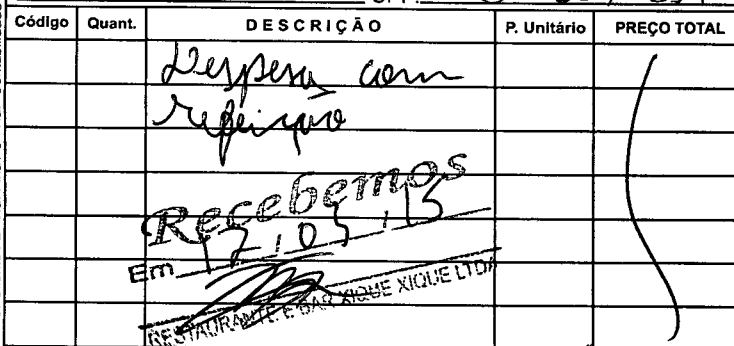 Código Quant. DESCRIÇÃO P. Unitário PREÇO TOTAL
Despesa com
refeição
Recebemos
Em 17, 03, 15
RESTAURANTE E BAR XIQUE XIQUE LTDA